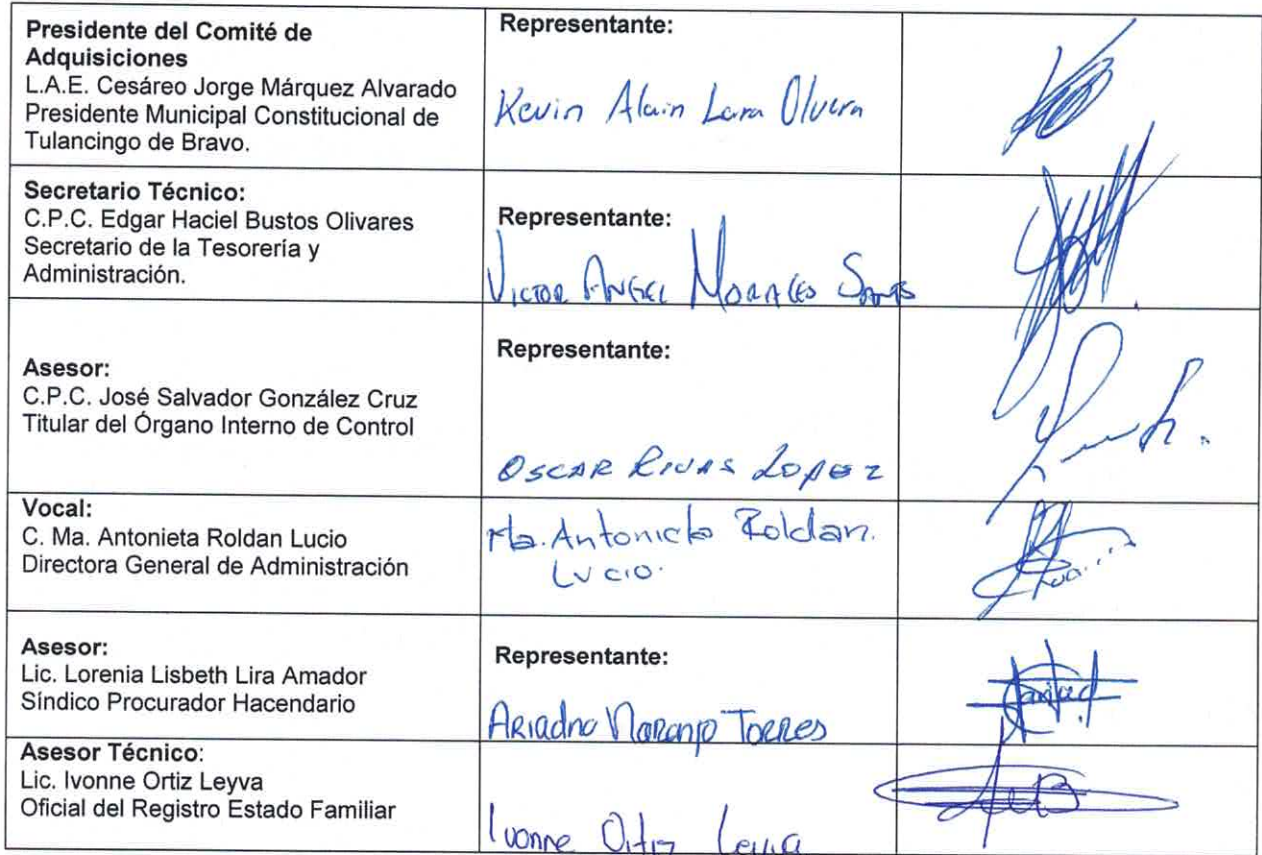 Presidente del Comité de
Adquisiciones
L.A.E. Cesáreo Jorge Márquez Alvarado
Presidente Municipal Constitucional de
Tulancingo de Bravo.
Representante:
Kevin Alain Lara Olvera
Secretario Técnico:
C.P.C. Edgar Haciel Bustos Olivares
Secretario de la Tesorería y
Administración.
Representante:
VICTOR ANGEL MORALES
Asesor:
C.P.C. José Salvador González Cruz
Titular del Órgano Interno de Control
Representante:
OSCAR RIVAS LOPEZ
Vocal:
C. Ma. Antonieta Roldan Lucio
Directora General de Administración
Ma. Antonieta Roldan.
Lucio.
Asesor:
Lic. Lorenia Lisbeth Lira Amador
Síndico Procurador Hacendario
Representante:
Ariadna Naranjo Torres
Asesor Técnico:
Lic. Ivonne Ortiz Leyva
Oficial del Registro Estado Familiar
Ivonne Ortiz Leyva